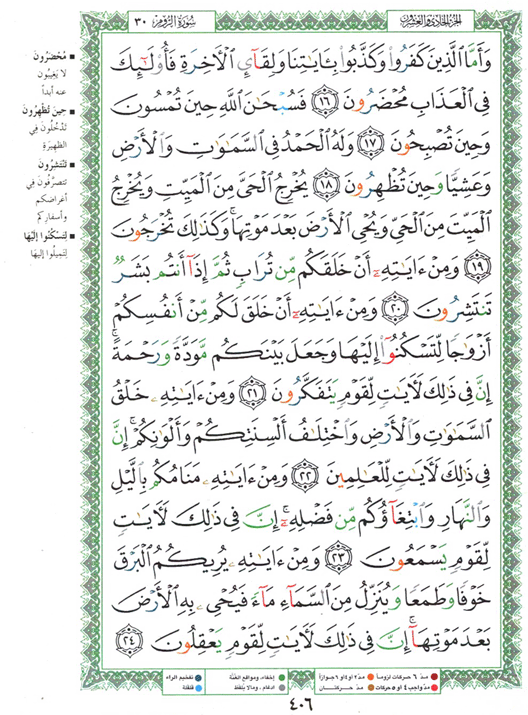 الجزء الحادي والعشرون
سُورَةُ الرُّومِ ٣٠
وَأَمَّا ٱلَّذِينَ كَفَرُوا۟ وَكَذَّبُوا۟ بِـَٔايَـٰتِنَا وَلِقَآئِ ٱلْـَٔاخِرَةِ فَأُو۟لَـٰٓئِكَ
فِى ٱلْعَذَابِ مُحْضَرُونَ ١٦ فَسُبْحَـٰنَ ٱللَّهِ حِينَ تُمْسُونَ
وَحِينَ تُصْبِحُونَ ١٧ وَلَهُ ٱلْحَمْدُ فِى ٱلسَّمَـٰوَٰتِ وَٱلْأَرْضِ
وَعَشِيًّا وَحِينَ تُظْهِرُونَ ١٨ يُخْرِجُ ٱلْحَىَّ مِنَ ٱلْمَيِّتِ وَيُخْرِجُ
ٱلْمَيِّتَ مِنَ ٱلْحَىِّ وَيُحْىِ ٱلْأَرْضَ بَعْدَ مَوْتِهَا ۚ وَكَذَٰلِكَ تُخْرَجُونَ
١٩ وَمِنْ ءَايَـٰتِهِۦٓ أَنْ خَلَقَكُم مِّن تُرَابٍ ثُمَّ إِذَآ أَنتُم بَشَرٌ
تَنتَشِرُونَ ٢٠ وَمِنْ ءَايَـٰتِهِۦٓ أَنْ خَلَقَ لَكُم مِّنْ أَنفُسِكُمْ
أَزْوَٰجًا لِّتَسْكُنُوٓا۟ إِلَيْهَا وَجَعَلَ بَيْنَكُم مَّوَدَّةً وَرَحْمَةً ۚ
إِنَّ فِى ذَٰلِكَ لَـَٔايَـٰتٍ لِّقَوْمٍ يَتَفَكَّرُونَ ٢١ وَمِنْ ءَايَـٰتِهِۦ خَلْقُ
ٱلسَّمَـٰوَٰتِ وَٱلْأَرْضِ وَٱخْتِلَـٰفُ أَلْسِنَتِكُمْ وَأَلْوَٰنِكُمْ ۚ إِنَّ
فِى ذَٰلِكَ لَـَٔايَـٰتٍ لِّلْعَـٰلِمِينَ ٢٢ وَمِنْ ءَايَـٰتِهِۦ مَنَامُكُم بِٱلَّيْلِ
وَٱلنَّهَارِ وَٱبْتِغَآؤُكُم مِّن فَضْلِهِۦٓ ۚ إِنَّ فِى ذَٰلِكَ لَـَٔايَـٰتٍ
لِّقَوْمٍ يَسْمَعُونَ ٢٣ وَمِنْ ءَايَـٰتِهِۦ يُرِيكُمُ ٱلْبَرْقَ
خَوْفًا وَطَمَعًا وَيُنَزِّلُ مِنَ ٱلسَّمَآءِ مَآءً فَيُحْىِۦ بِهِ ٱلْأَرْضَ
بَعْدَ مَوْتِهَآ ۚ إِنَّ فِى ذَٰلِكَ لَـَٔايَـٰتٍ لِّقَوْمٍ يَعْقِلُونَ ٢٤
■ مُحْضَرُونَ
لا يَغِيبُونَ
عنه أبداً
■ حِينَ تُظْهِرُونَ
تَدْخُلُونَ فِي
الظهيرَةِ
■ تَنتَشِرُونَ
تتصرَّفُونَ فِي
أغراضِكم
وأسفارِكم
■ لِتَسْكُنُوا إِلَيْهَا
لتمِيلُوا إليها
مدّ ٦ حركات لزوماً
مدّ ٢ أو ٤ أو ٦ جوازاً
إخفاء، ومواقع الغُنَّة
تفخيم الراء
مدّ واجب ٤ أو ٥ حركات
مدّ حركتان
ادغام، وما لا يُلفظ
قلقلة
٤٠٦